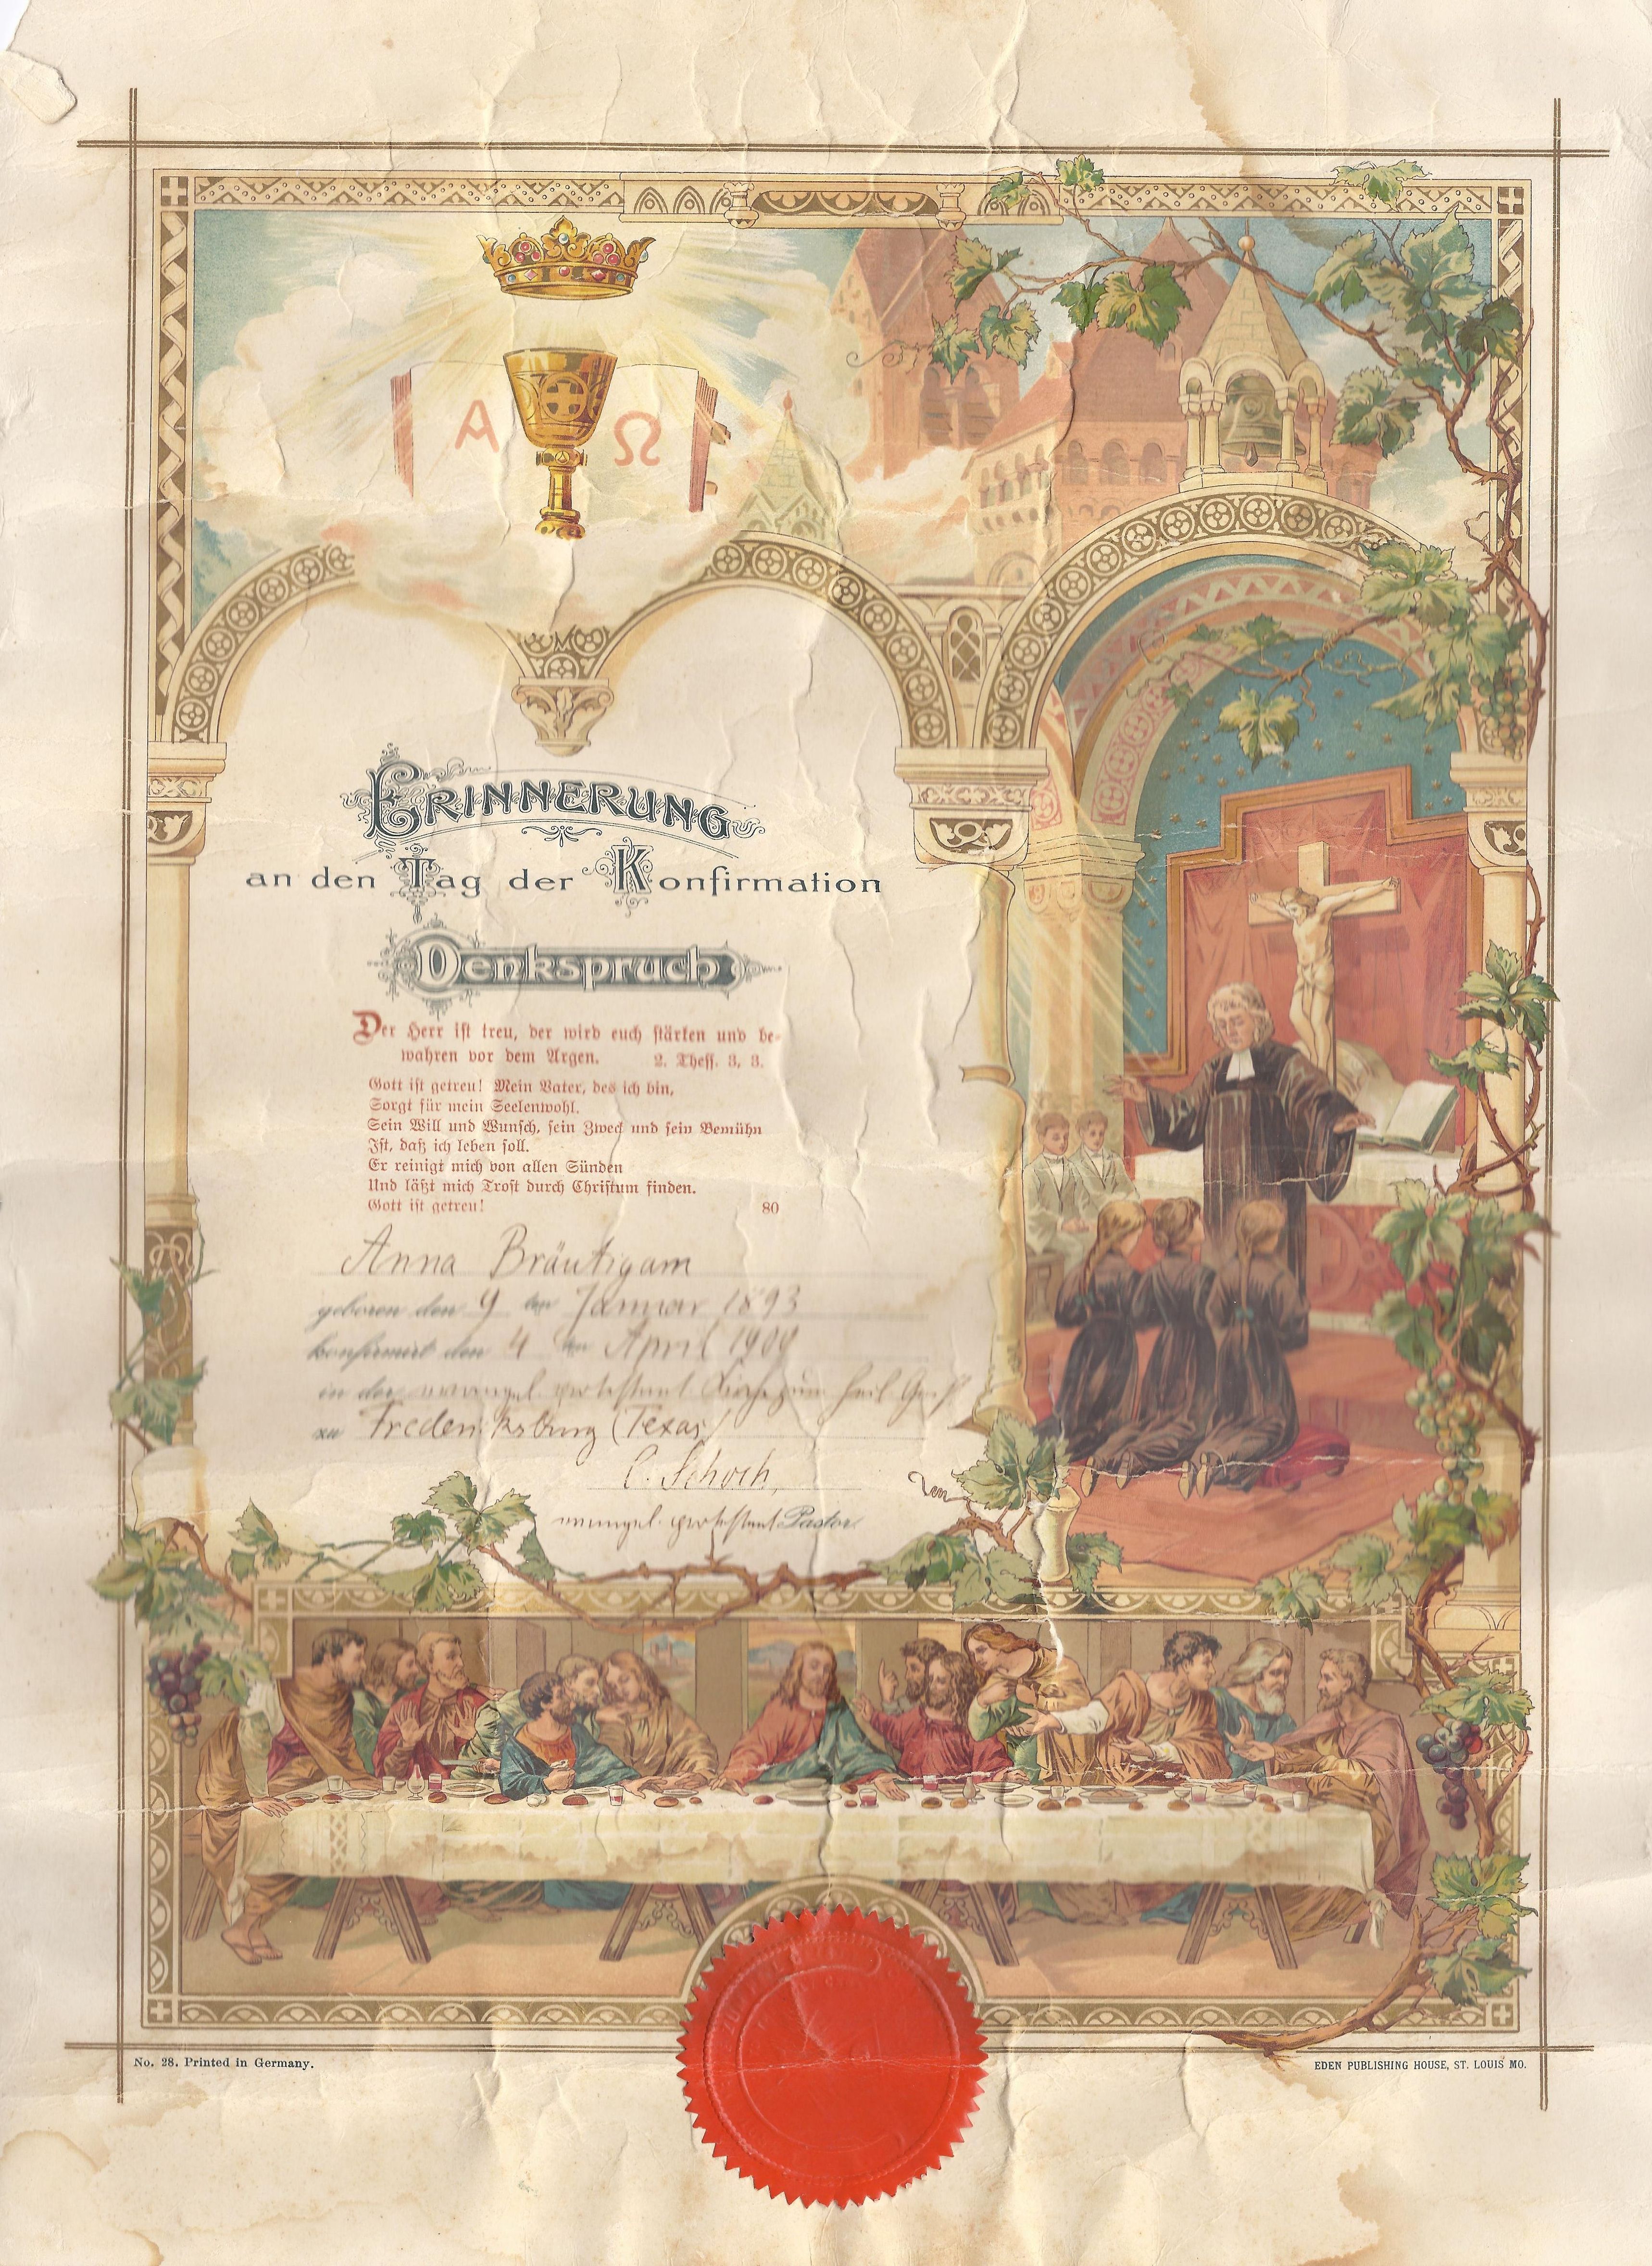 Α Ω
ERINNERUNG
an den Tag der Konfirmation
Denkspruch
Der Herr ist treu, der wird euch stärken und be-
wahren vor dem Argen. 2. Thess. 3, 3.
Gott ist getreu! Mein Vater, des ich bin,
Sorgt für mein Seelenwohl.
Sein Will und Wunsch, sein Zweck und sein Bemühn
Ist, daß ich leben soll.
Er reinigt mich von allen Sünden
Und läßt mich Trost durch Christum finden.
Gott ist getreu!
80
Anna Bräutigam
geboren den 9 ten Januar 1893
konfirmirt den 4 ten April 1909
in der evangel. protestant. Kirche zum heil. Geist
zu Fredericksburg (Texas)
C. Schoch,
evangel. protestant. Pastor.
No. 28. Printed in Germany.
EDEN PUBLISHING HOUSE, ST. LOUIS MO.